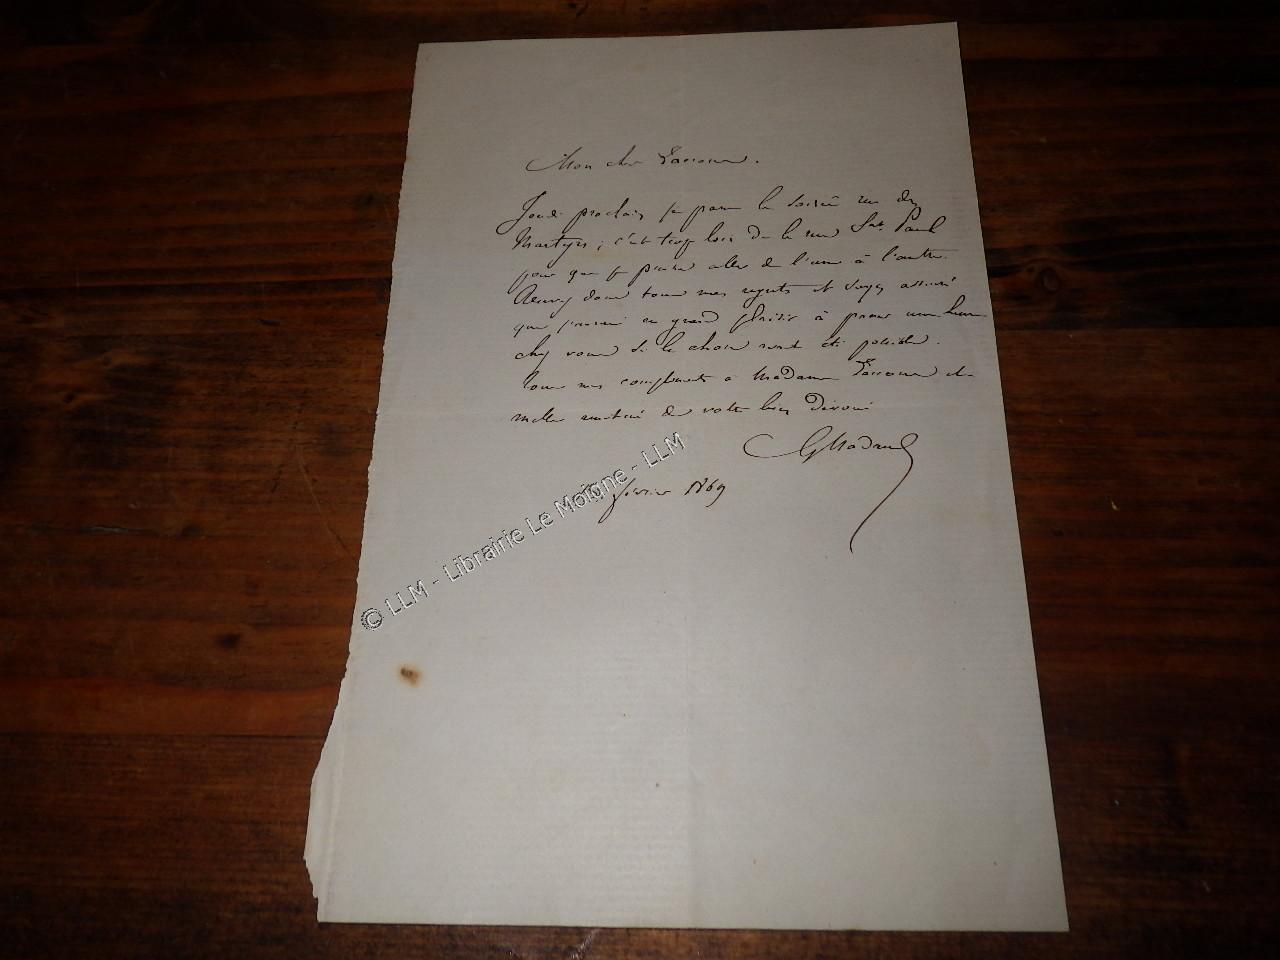 Mon cher
Jeudi prochain je passe la soirée rue des
Martyrs ; c'est trop loin de la rue St. Paul
pour que je puisse aller de l'une à l'autre.
Recevez donc tous mes regrets et soyez assuré
que j'aurais eu grand plaisir à passer une heure
chez vous si la chose avait été possible.
Tous mes compliments à Madame et
mille amitiés de votre bien dévoué
GNadaud
février 1869
© LLM - Librairie Le Moigne - LLM